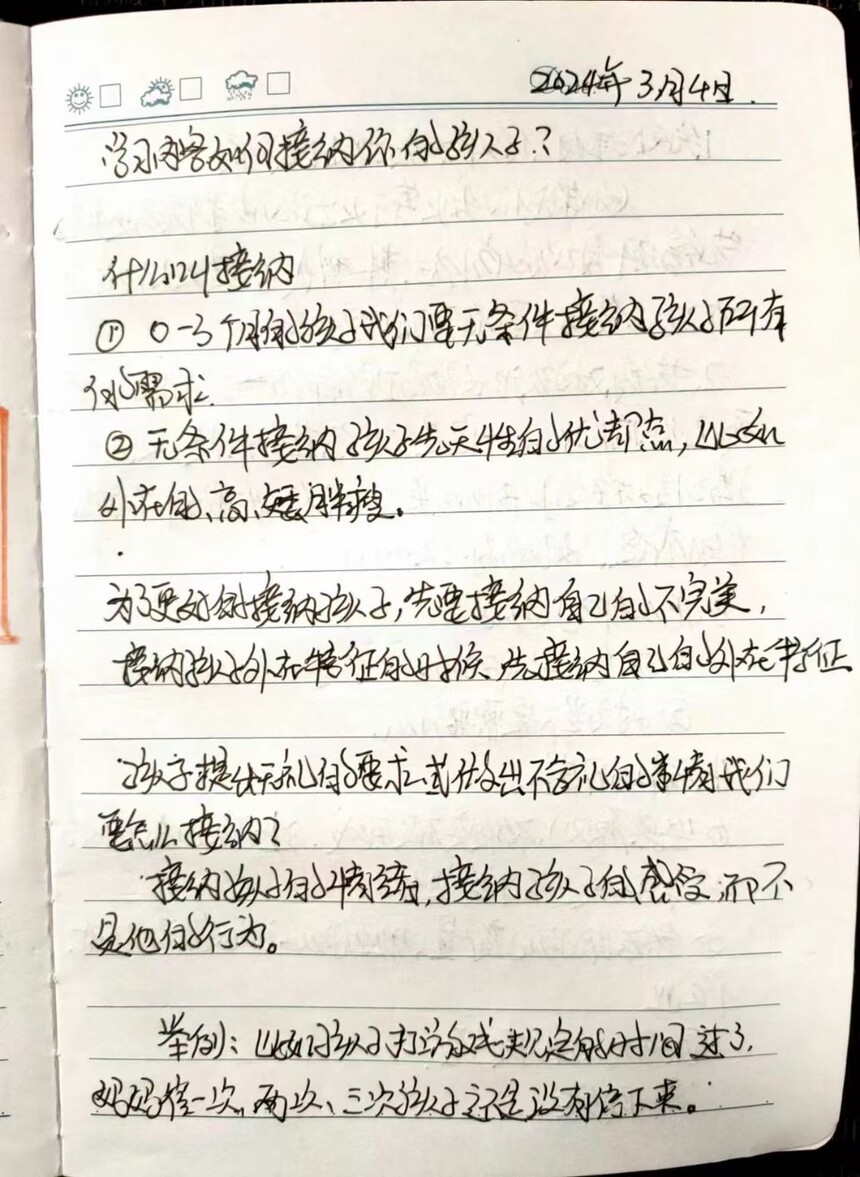 2024年3月4日.
学习内容如何接纳你的孩子?
什么叫接纳
① 0-3个月的孩子我们要无条件接纳孩子所有
的需求.
② 无条件接纳孩子先天性的优缺点,比如
外在的、高、矮、胖瘦。
为了更好的接纳孩子,先要接纳自己的不完美,
接纳孩子外在特征的时候、先接纳自己的外在特征
孩子提出无礼的要求或做出不合礼的事情我们
要怎么接纳?
接纳孩子的情绪,接纳孩子的感受,而不
是他的行为。
举例:比如孩子打游戏规定的时间过了,
妈妈催一次、两次、三次孩子还是没有停下来。